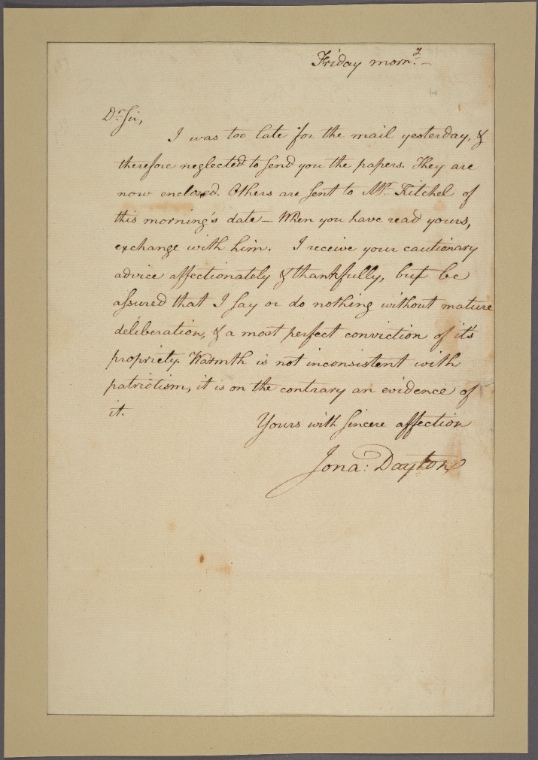 Friday morng.
Dr. Sir,
I was too late for the mail yesterday, &
therefore neglected to send you the papers. They are
now enclosed. Others are sent to Mr. Kitchel of
this morning's date – When you have read yours,
exchange with him. I receive your cautionary
advice affectionately & thankfully, but be
assured that I say or do nothing without mature
deliberation, & a most perfect conviction of it's
propriety. Warmth is not inconsistent with
patriotism, it is on the contrary an evidence of
it.
Yours with sincere affection
Jona: Dayton